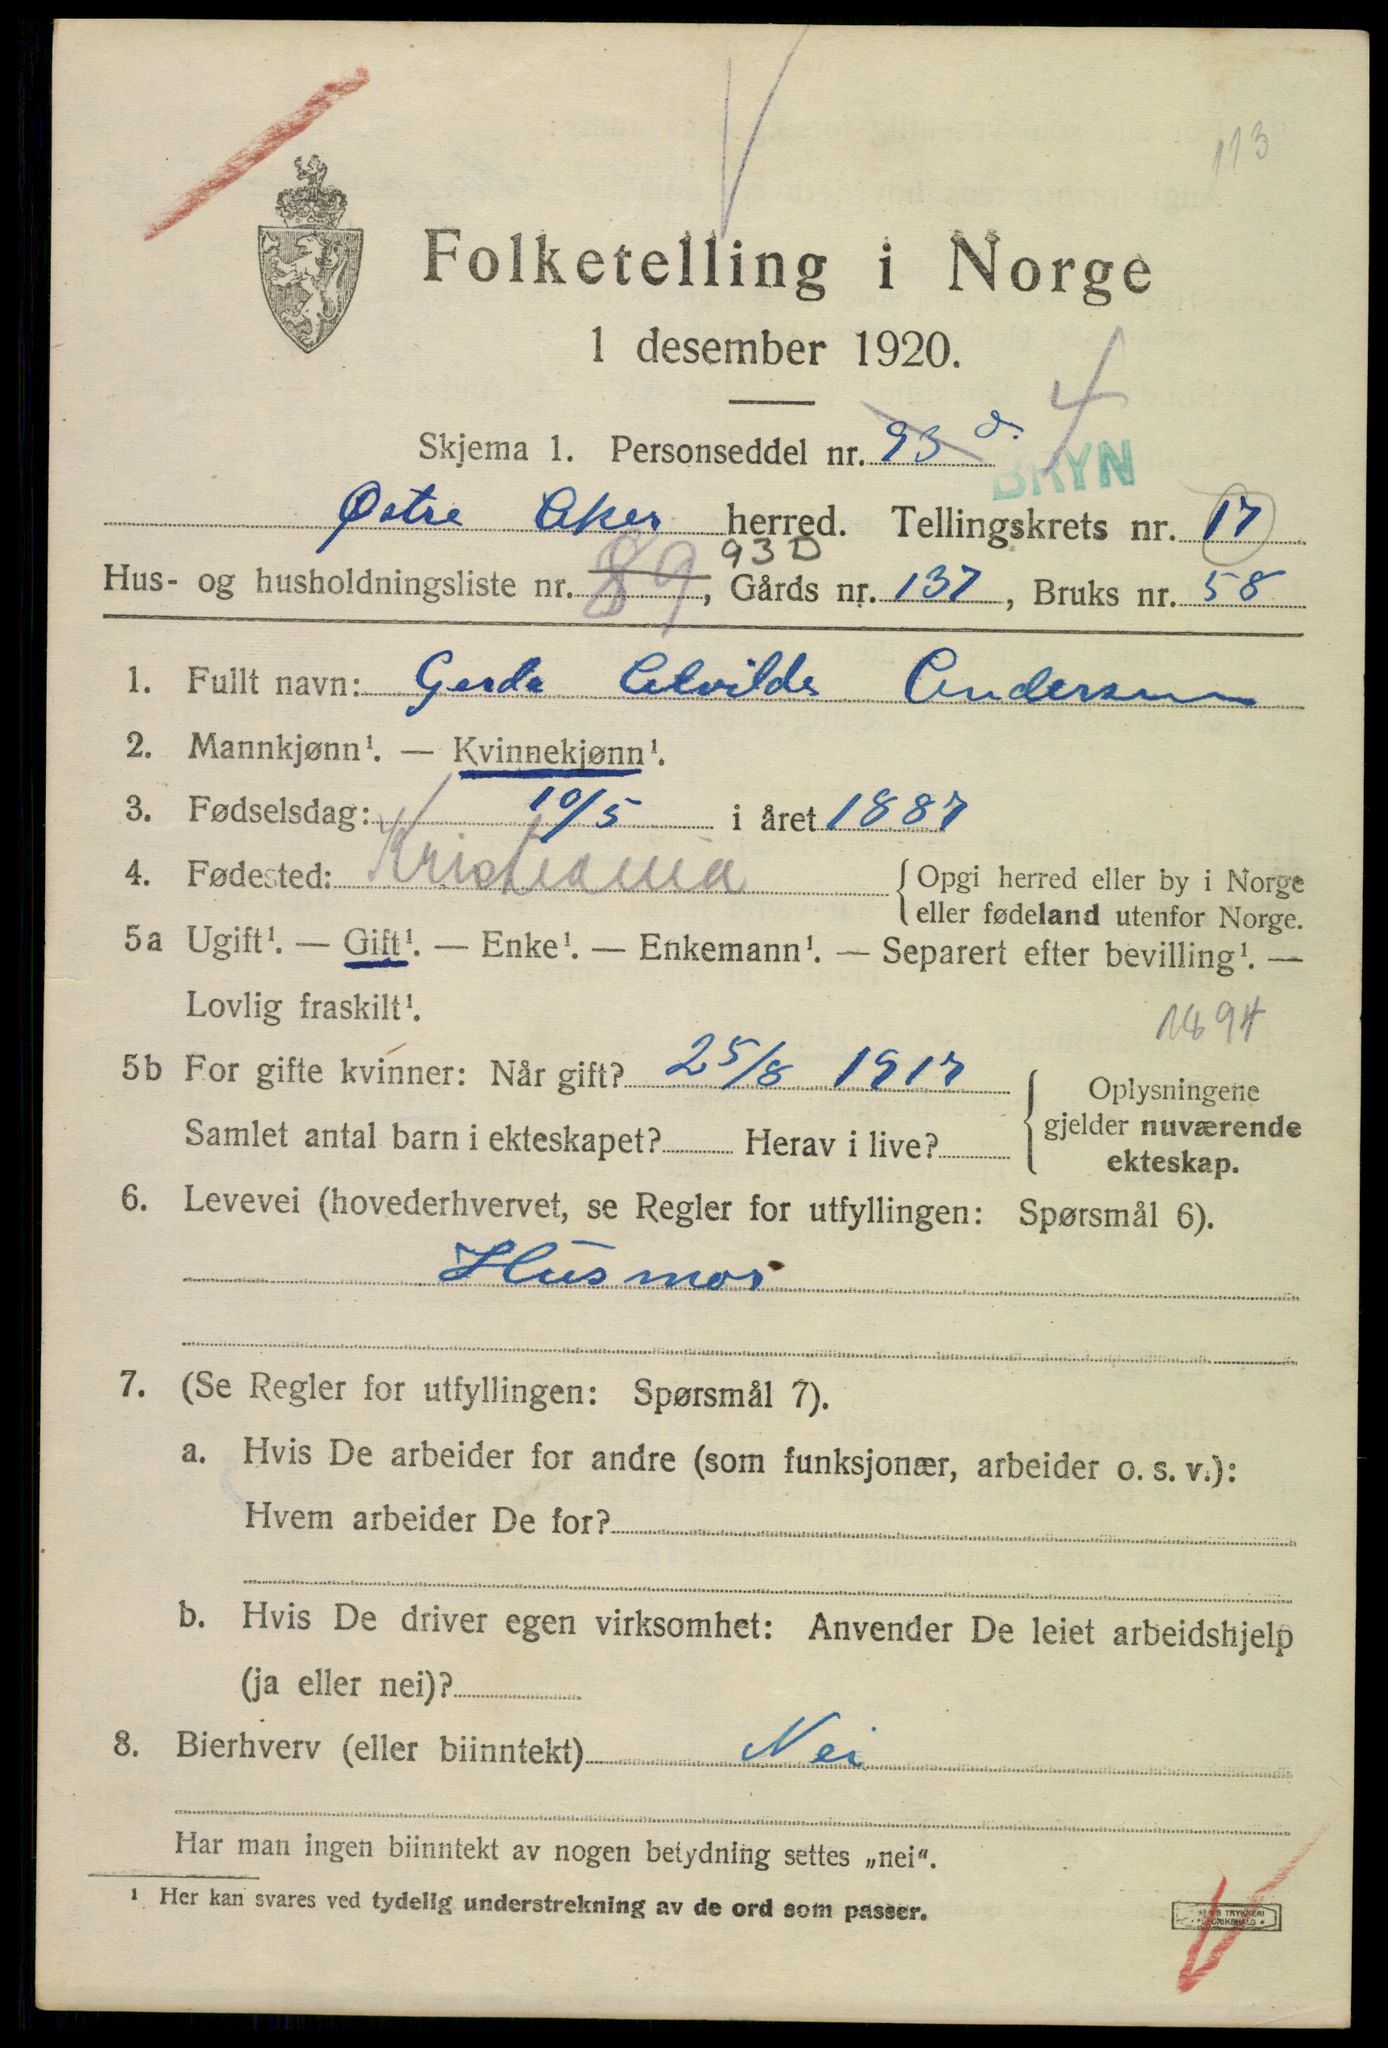 113
Folketelling i Norge
1 desember 1920.
Skjema 1. Personseddel nr. 93 d. 4
BRYN
Østre Aker herred. Tellingskrets nr. 17
93 D
Hus- og husholdningsliste nr. 89, Gårds nr. 137, Bruks nr. 58
1. Fullt navn: Gerda Alvilde Andersen
2. Mannkjønn¹. — Kvinnekjønn¹.
3. Fødselsdag: 10/5 i året 1887
4. Fødested: Kristiania { Opgi herred eller by i Norge
eller fødeland utenfor Norge.
5a Ugift¹. — Gift¹. — Enke¹. — Enkemann¹. — Separert efter bevilling¹. —
Lovlig fraskilt¹.
5b For gifte kvinner: Når gift? 25/8 1917
Samlet antal barn i ekteskapet? Herav i live?
{ Oplysningene
gjelder nuværende
ekteskap.
6. Levevei (hovederhvervet, se Regler for utfyllingen: Spørsmål 6).
Husmor
7. (Se Regler for utfyllingen: Spørsmål 7).
a. Hvis De arbeider for andre (som funksjonær, arbeider o. s. v.):
Hvem arbeider De for?
b. Hvis De driver egen virksomhet: Anvender De leiet arbeidshjelp
(ja eller nei)?
8. Bierhverv (eller biinntekt) Nei
Har man ingen biinntekt av nogen betydning settes „nei“.
¹ Her kan svares ved tydelig understrekning av de ord som passer.
TRYKKERI